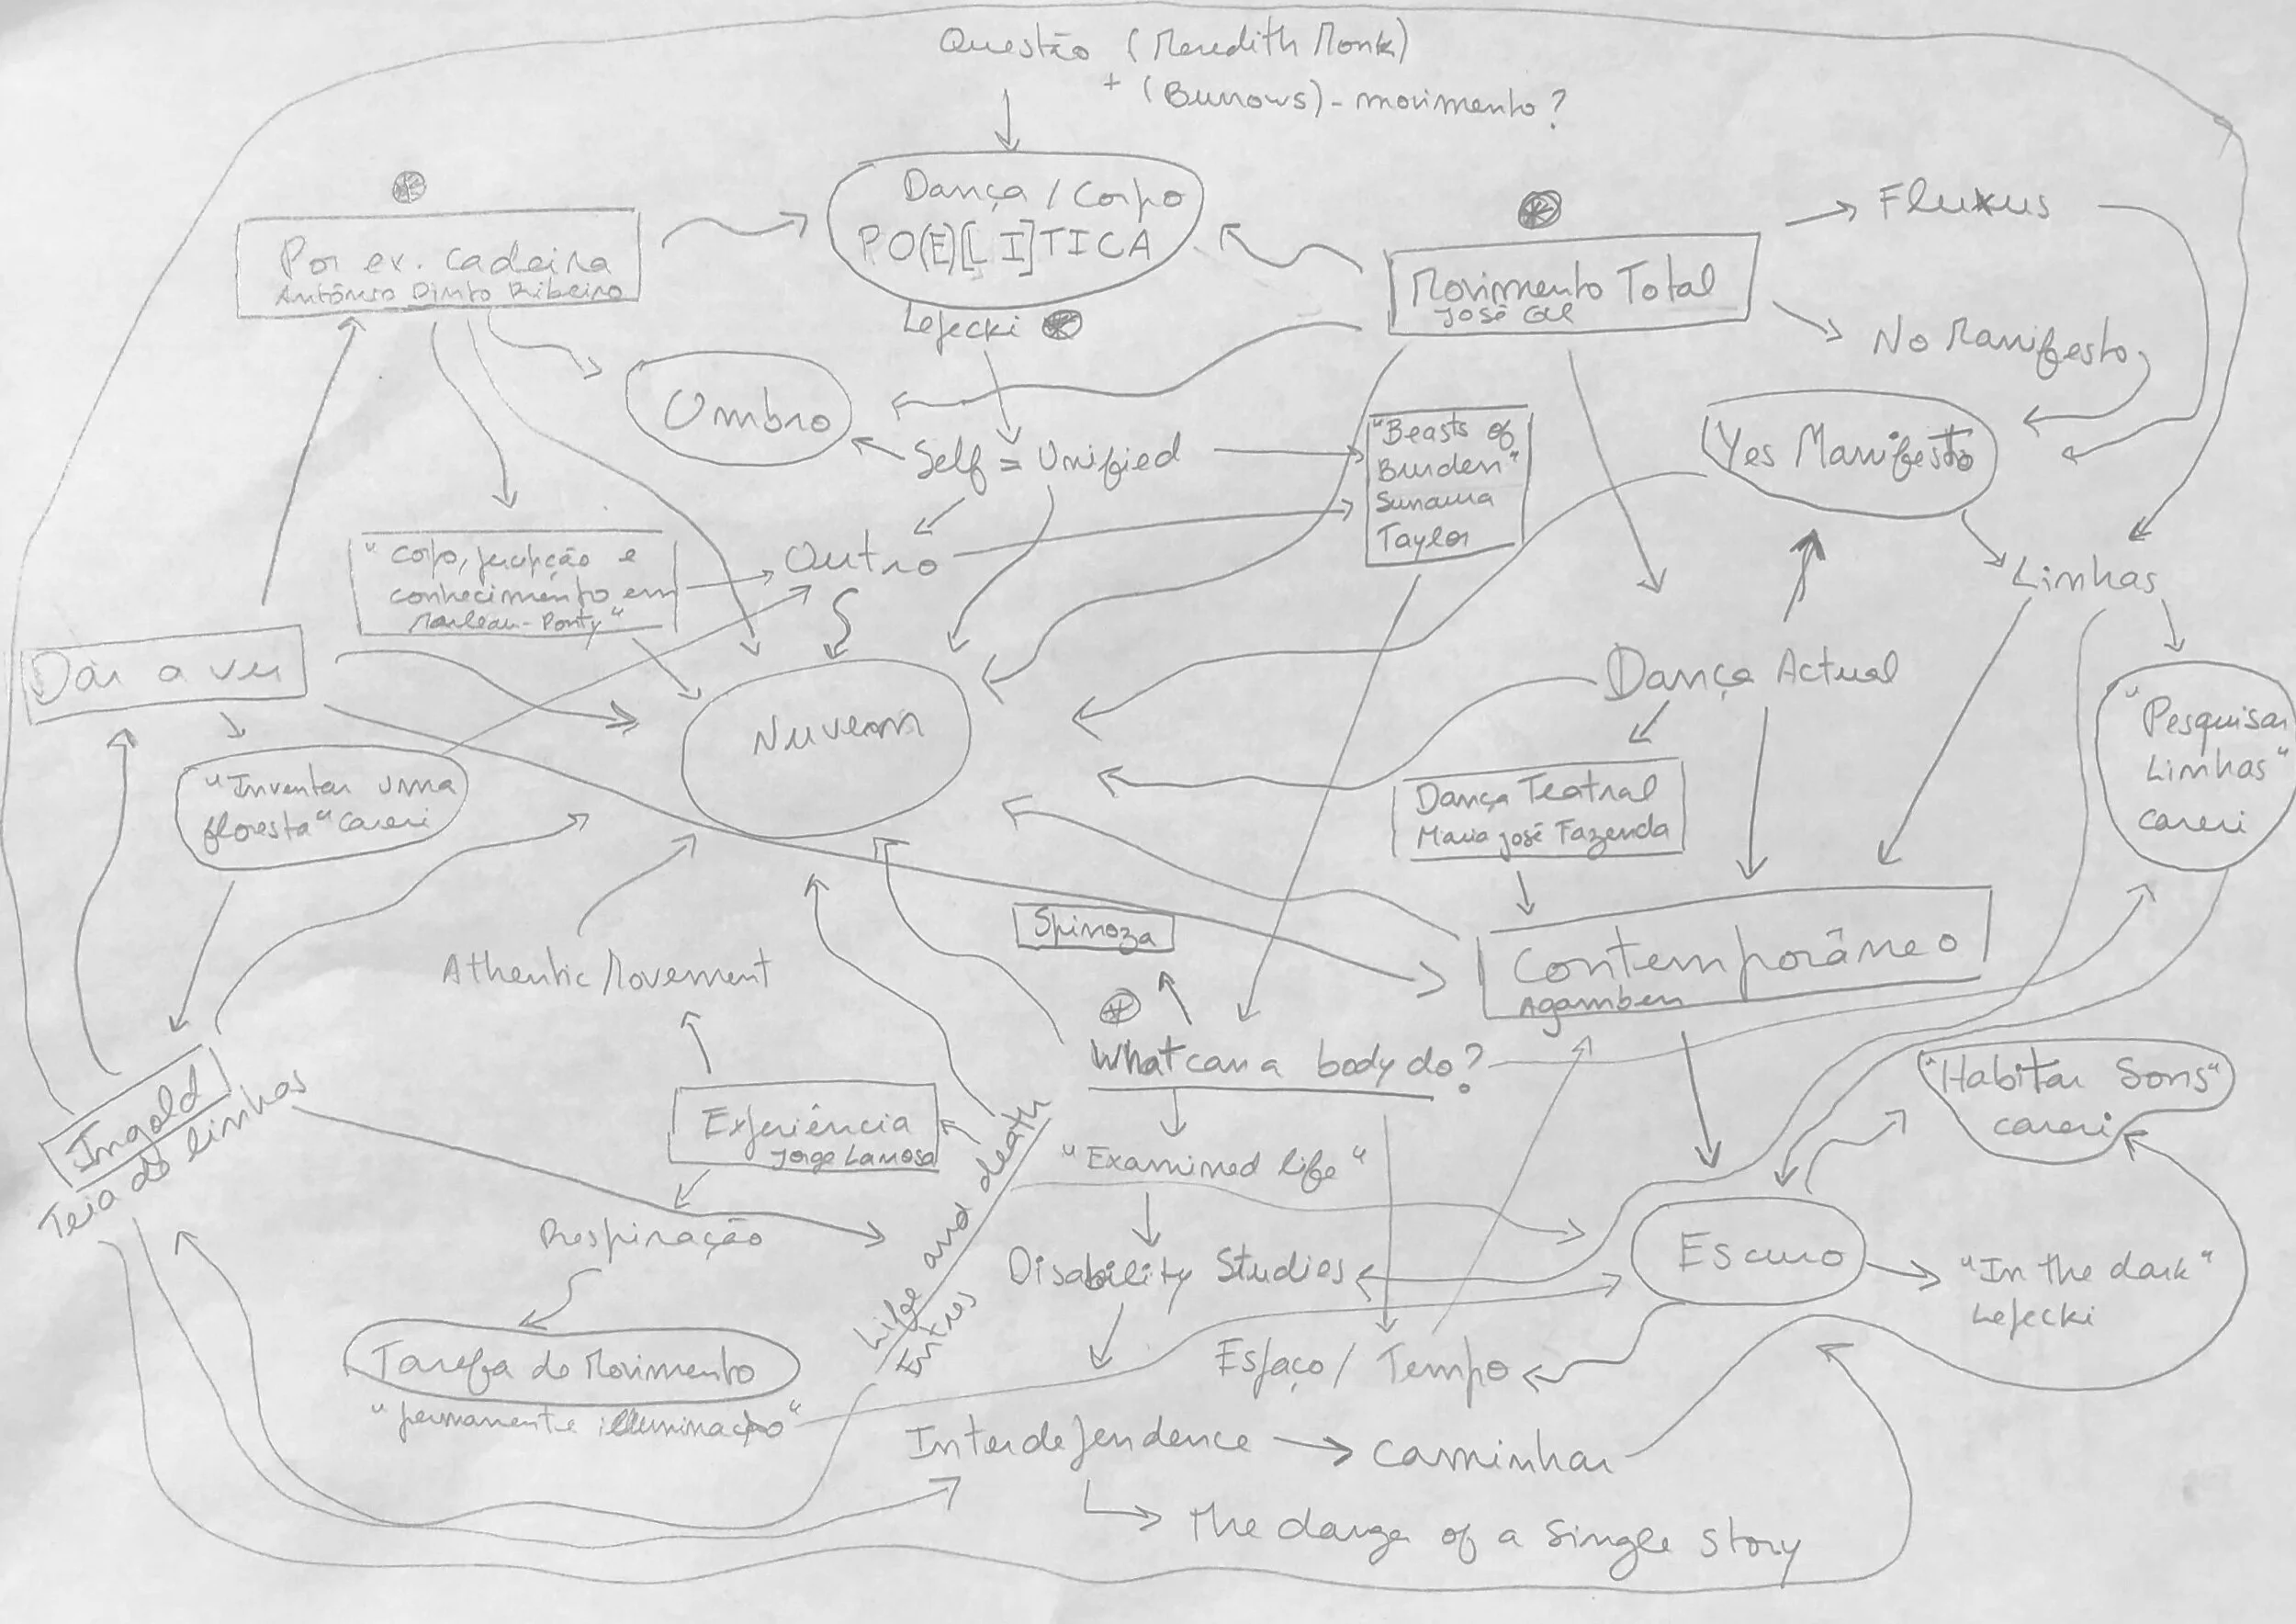 Questão (Meredith Monk)
+ (Burrows) - movimento?
Dança / Corpo
PO(E)[LI]TICA
Lepecki
Por ex. Cadeira
António Pinto Ribeiro
Movimento Total
José Gil
Fluxus
No Manifesto
Ombro
Self = Unified
"Beasts of
Burden"
Sunaura
Taylor
Yes Manifesto
"Corpo, percepção e
conhecimento em
Merleau-Ponty"
Outro
Linhas
Dar a ver
Nuvem
Dança Actual
"Pesquisar
Linhas"
Careri
"Inventar uma
floresta" Careri
Dança Teatral
Maria José Fazenda
Spinoza
Contemporâneo
Agamben
Athentic Movement
What can a body do?
"Habitar Sons"
Careri
Ingold
Teia de linhas
Experiência
Jorge Larrosa
Life and death
Entres
"Examined life"
Respiração
Disability Studies
Escuro
"In the dark"
Lepecki
Tarefa de Movimento
"permanente illuminação"
Espaço / Tempo
Interdependence
Caminhar
The danger of a single story